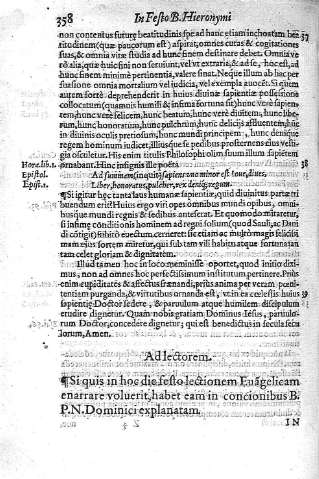 358 In Festo B. Hieronymi
non contentus futuræ beatitudinis spe ad hanc etiam inchoatam beatitudinem
(quæ paucorum est) aspirat, omnes curas & cogitationes
suas, & omnia vitæ studia ad hunc finem destinare debet. Omnia vero
alia, quæ huic fini non seruiunt, vel vt extraria, & ad se, hoc est, ad
hunc finem minimè pertinentia, valere sinat. Neque illum ab hac persuasione
omnia mortalium vel iudicia, vel exempla auocēt. Si quem
autem fortè deprehenderit in huius diuinæ sapientiæ possessione
collocatum (quamuis humili & infima fortuna sit) hunc verè sapientem,
hunc verè felicem, hunc beatum, hunc verè diuitem, hunc liberum,
hunc honoratum, hunc pulchrū, hunc deliciis affluentem, hūc
in diuinis oculis pretiosum, hunc mundi principem, hunc denique
regem hominum iudicet, illiusque se pedibus prosternens eius vestigia
osculetur. His enim titulis Philosophi olim suum illum sapientem
ornabant. Hinc insignis ille poëta
Hora. lib. 1.
Epistol.
Epist. 1.
Ad summam (inquit) sapiens vno minor est Ioue, diues,
Liber, honoratus, pulcher, rex denique regum.
¶ Si igitur hęc tanta laus humanæ sapientiæ, quid diuinitus partæ tribuendum
erit? Huius ergo viri opes omnibus mundi opibus, omnibusque
mundi regnis & sedibus anteferat. Et quomodo miraretur,
si infimę conditionis hominem ad regni solium (quod Sauli, ac Dauidi
cōtigit) subitò euectum, cerneret: sic etiam ac multò magis felicitatem
eius sortem miretur, qui sub tam vili habitu atque fortuna tantam
celet gloriam & dignitatem.
Illud tamen hoc in loco meminisse oportet, quod initio diximus,
non ad omnes hoc perfectissimum institutum pertinere. Priùs
enim cupiditatēs & affectus frænandi, prius anima per veram pœnitentiam
purganda, & virtutibus ornanda est, vt in ea cælestis huius
Doctor sapientię sedere, & paruulum atque humilem discipulum
erudire dignetur. Quam nobis gratiam Dominus Iesus, paruulorum
Doctor, concedere dignetur, qui est benedictus in secula seculorum,
Amen.
Ad lectorem.
¶ Si quis in hoc die festo lectionem Euāgelicam
enarrare voluerit, habet eam in concionibus B.
P. N. Dominici explanatam.
IN